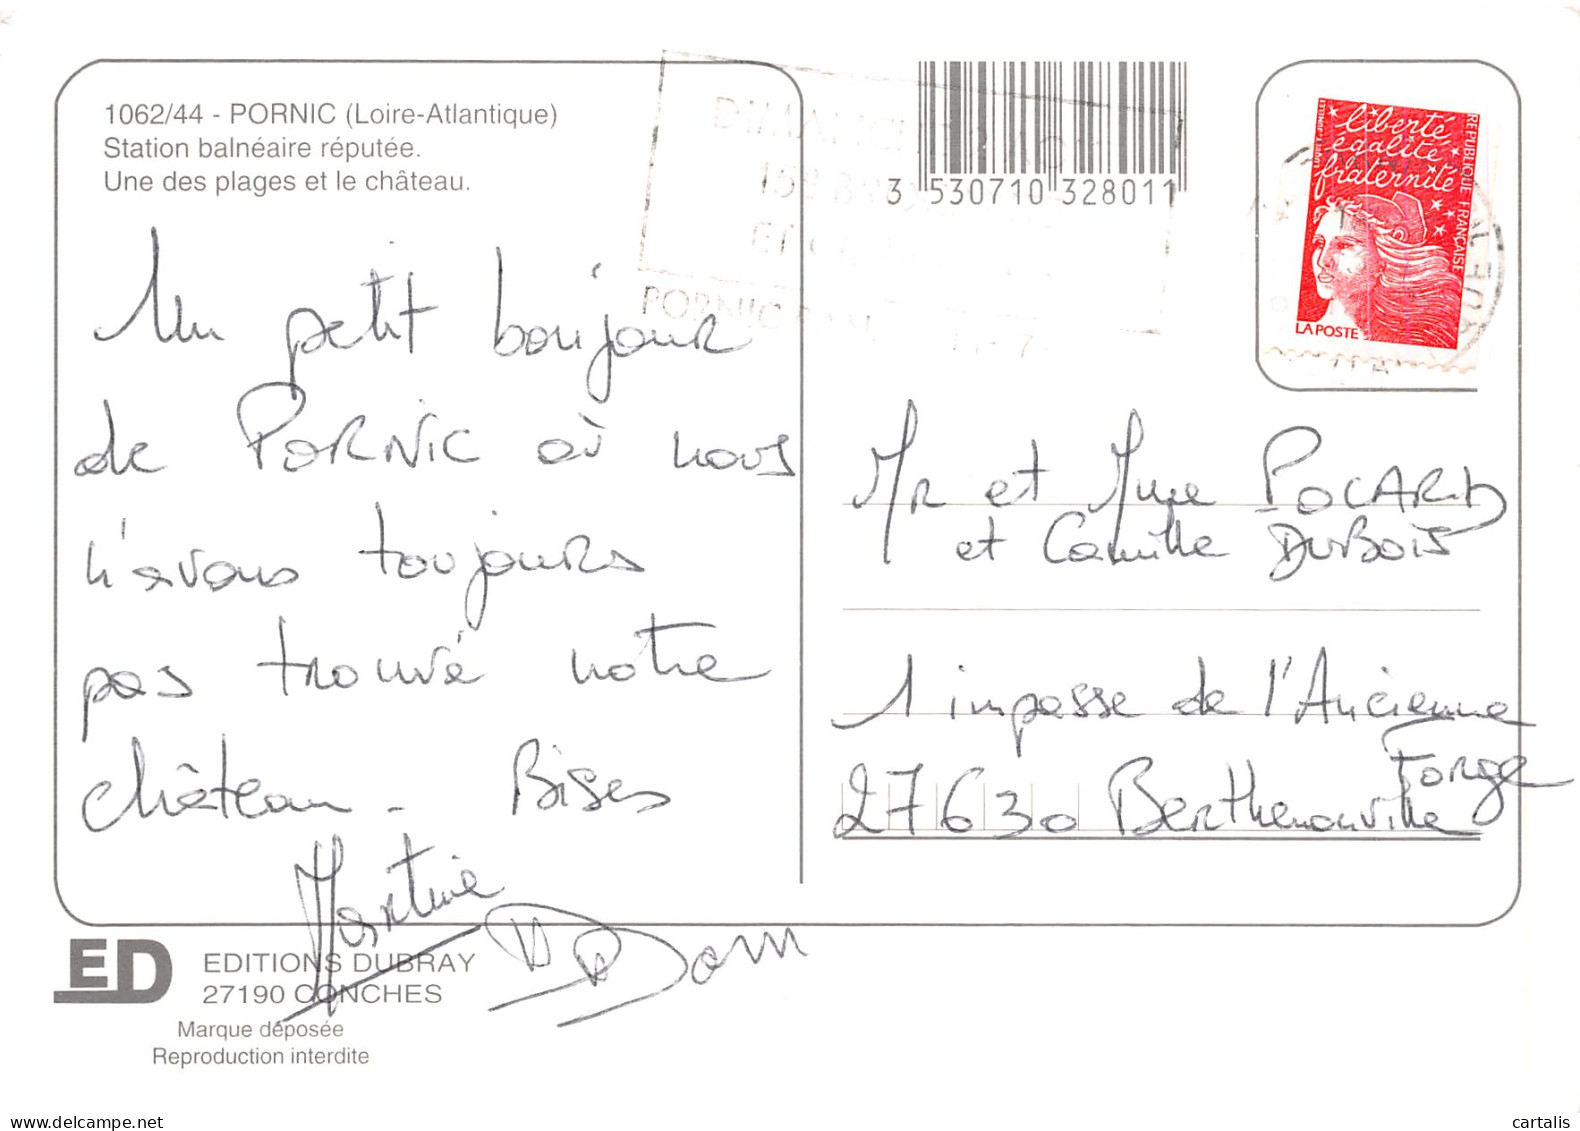 1062/44 - PORNIC (Loire-Atlantique)
Station balnéaire réputée.
Une des plages et le château.
Un petit bonjour
de PORNIC où nous
n'avons toujours
pas trouvé notre
château - Bises
Martine
Dom
EDITIONS DUBRAY
27190 CONCHES
ED
Marque déposée
Reproduction interdite
3 530710 328011
PORNIC
liberté
égalité
fraternité
REPUBLIQUE FRANÇAISE
LA POSTE
Mr et Mme POCARD
et Camille DUBOIS
1 impasse de l'Ancienne
Forge
27630 Berthenonville
cartalis